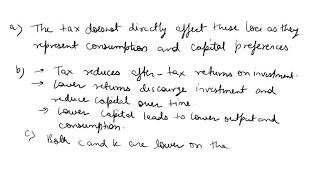 a) The tax doesnot directly affect these loci as they
represent consumption and capital preferences.
b) → Tax reduces after-tax returns on investment.
→ Lower returns discourge investment and
reduce capital over time
→ Lower capital leads to lower output and
consumption.
c) Both c and k are lower on the